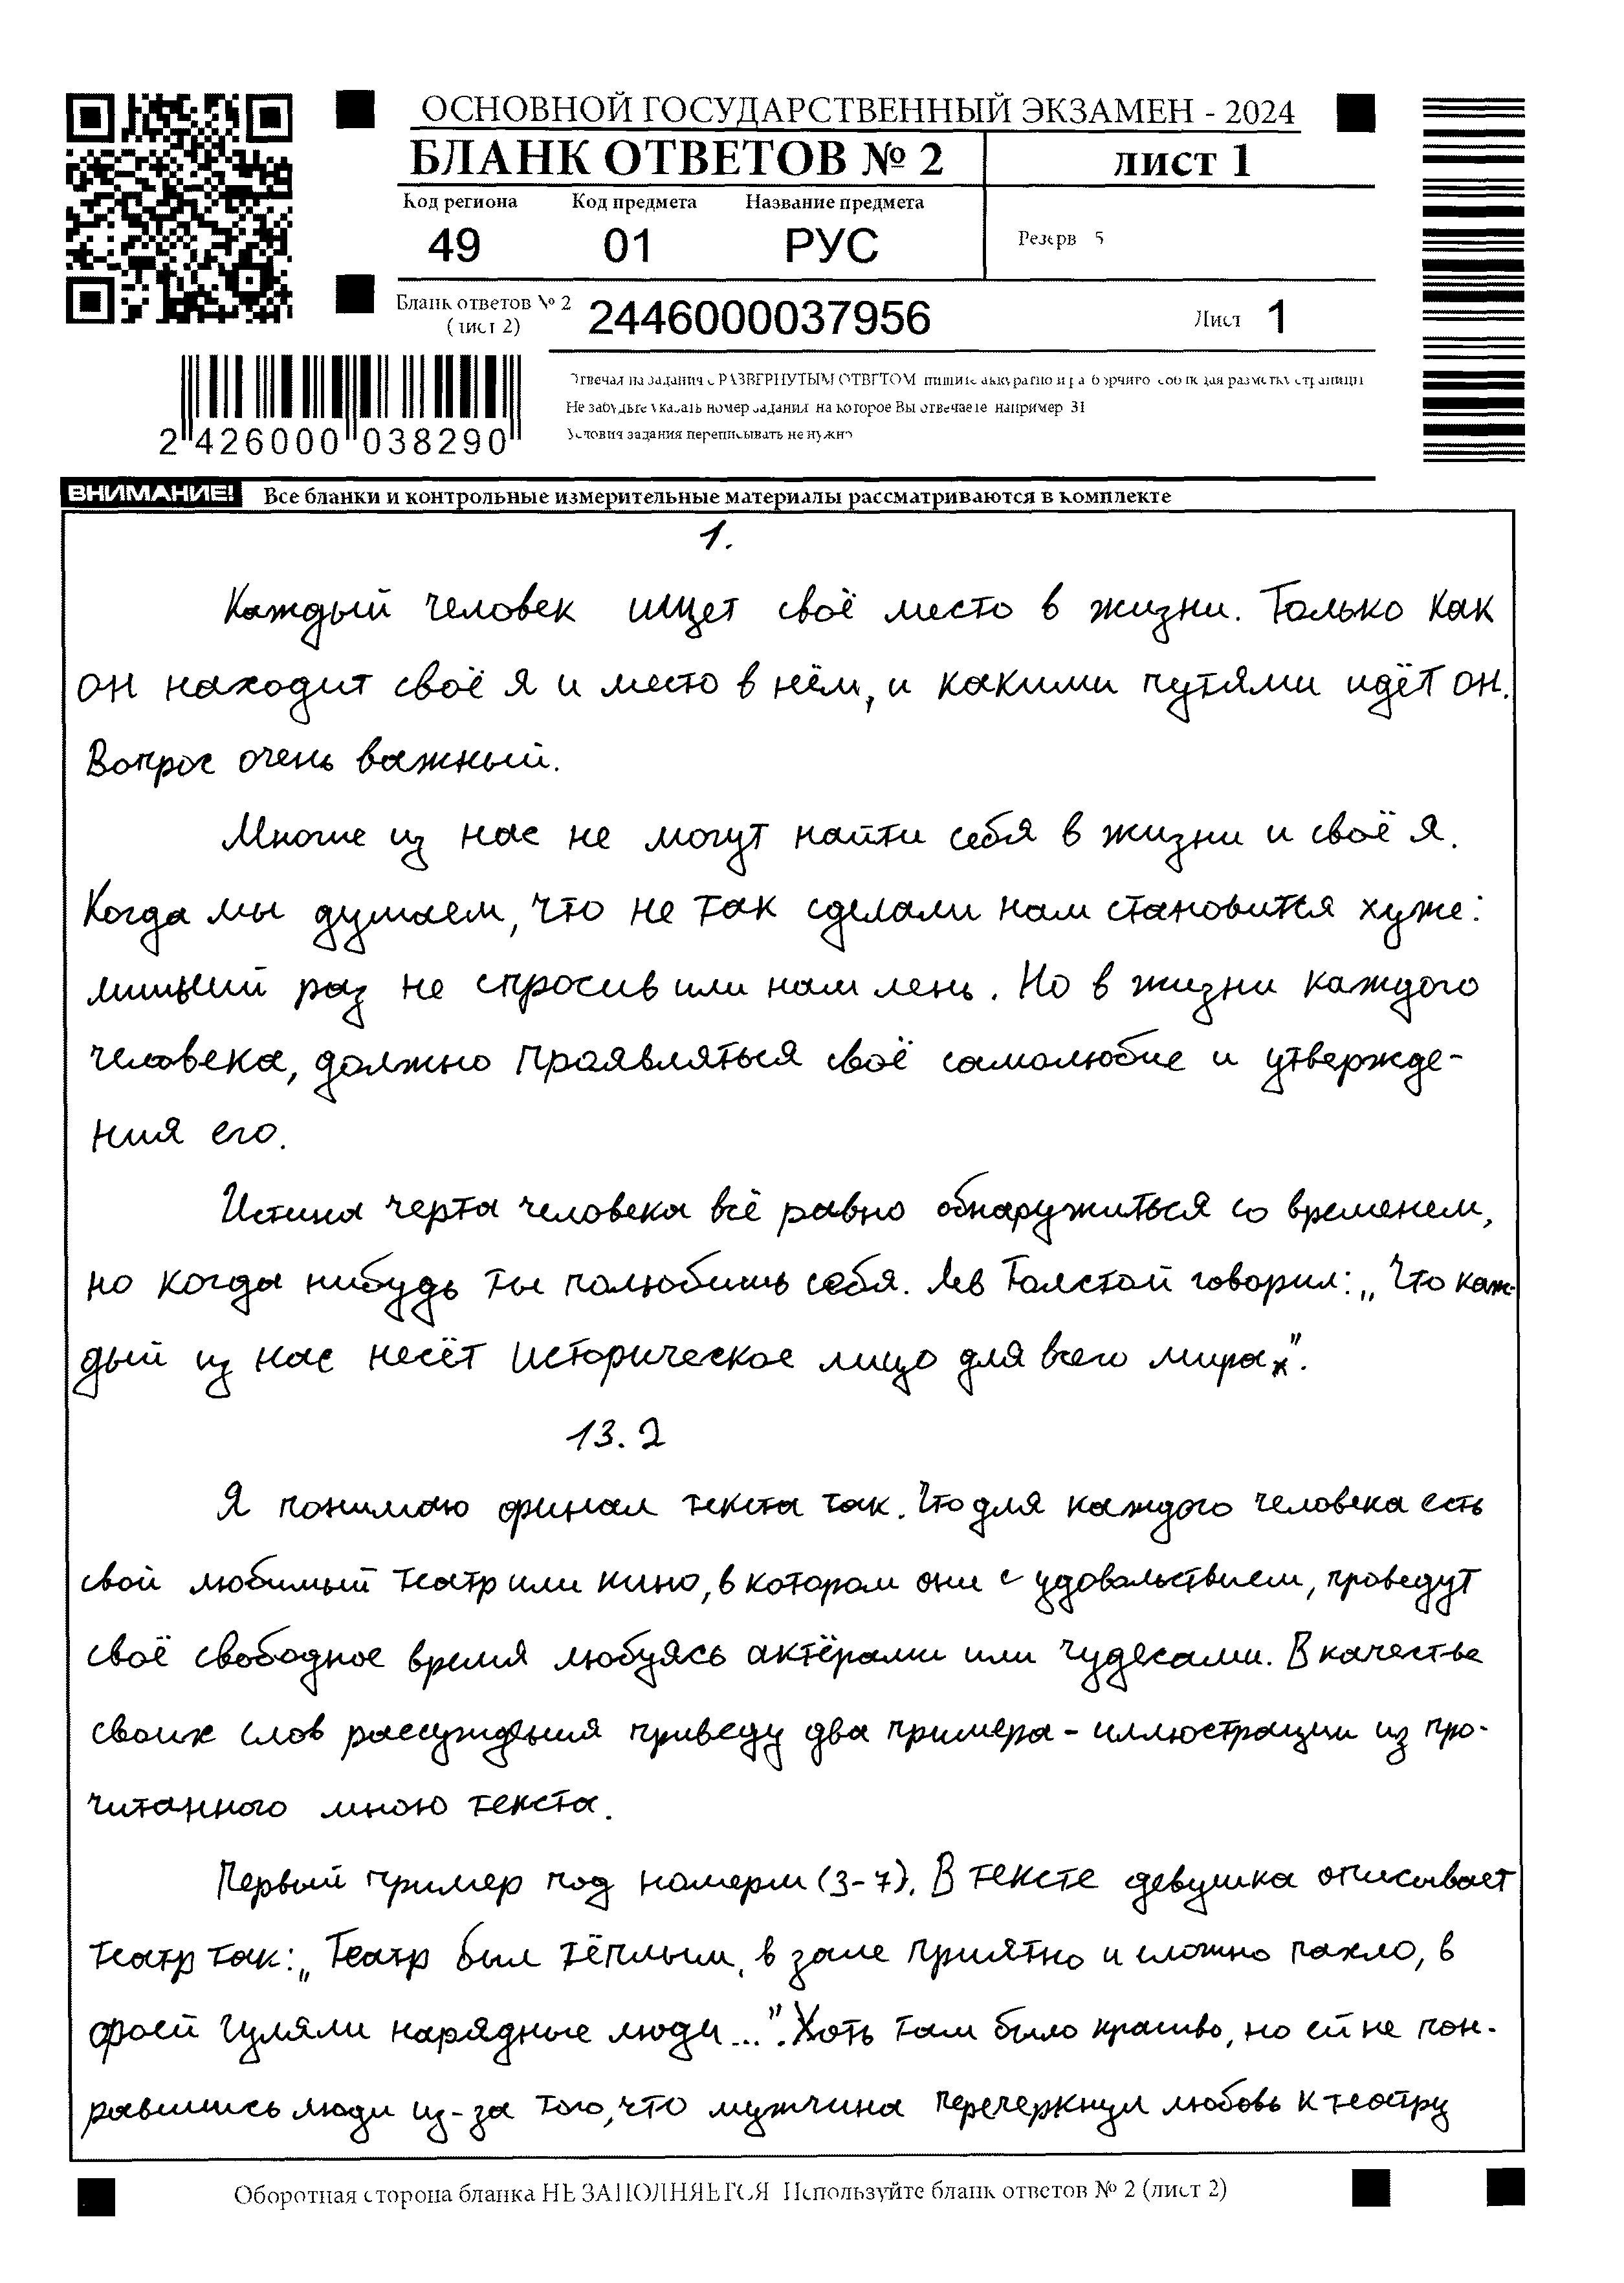 ОСНОВНОЙ ГОСУДАРСТВЕННЫЙ ЭКЗАМЕН - 2024
БЛАНК ОТВЕТОВ № 2
лист 1
Код региона Код предмета Название предмета
49 01 РУС
Резерв 5
Бланк ответов № 2
(лист 2)
2446000037956
Лист 1
2 426000 038290
Отвечая на задания с РАЗВЕРНУТЫМ ОТВЕТОМ пишите аккуратно и разборчиво соблюдая разметку страницы
Не забудьте указать номер задания на которое Вы отвечаете например 31
Условия задания переписывать не нужно
ВНИМАНИЕ! Все бланки и контрольные измерительные материалы рассматриваются в комплекте
1.
Каждый человек ищет своё место в жизни. Только как
он находит своё я и место в нём, и какими путями идёт он.
Вопрос очень важный.
Многие из нас не могут найти себя в жизни и своё я.
Когда мы думаем, что не так сделали нам становится хуже:
лишний раз не спросив или нам лень. Но в жизни каждого
человека, должно проявляться своё самолюбие и утвержде-
ния его.
Истина черта человека всё равно обнаружиться со временем,
но когда нибудь ты полюбишь себя. Лев Толстой говорил: „Что каж-
дый из нас несёт историческое лицо для всего мира".
13.2
Я понимаю финал текста так. Что для каждого человека есть
свой любимый театр или кино, в котором они с удовольствием, проведут
своё свободное время любуясь актёрами или чудесами. В качестве
своих слов рассуждения приведу два примера - иллюстрации из про-
читанного мною текста.
Первый пример под номерм (3-7). В тексте девушка описывает
театр так: „Театр был тёплым, в зале приятно и сложно пахло, в
фоей гуляли нарядные люди...". Хоть там было красиво, но ей не пон-
равились люди из-за того, что мужчина перечеркнул любовь к театру
Оборотная сторона бланка НЕ ЗАПОЛНЯЕТСЯ Используйте бланк ответов № 2 (лист 2)